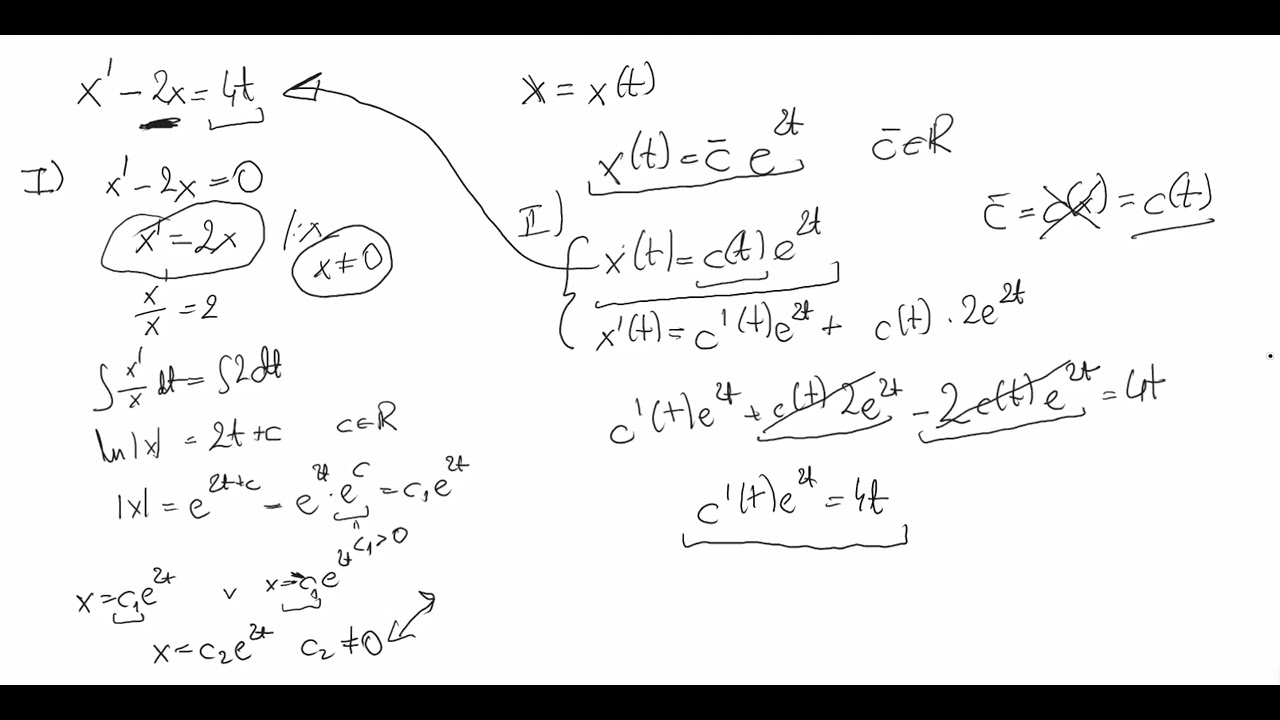 x' − 2x = 4t
I) x' − 2x = 0
x' = 2x /:x
x ≠ 0
x'/x = 2
∫ x'/x dt = ∫ 2dt
ln|x| = 2t + c c ∈ R
|x| = e^{2t+c} = e^{2t} · e^{c} = c₁e^{2t}
c₁ > 0
x = c₁e^{2t} v x = −c₁e^{2t}
x = c₂e^{2t} c₂ ≠ 0
x = x(t)
x(t) = c̄ e^{2t} c̄ ∈ R
c̄ = c(x) = c(t)
II)
x(t) = c(t) e^{2t}
x'(t) = c'(t)e^{2t} + c(t) · 2e^{2t}
c'(t)e^{2t} + c(t) 2e^{2t} − 2c(t) e^{2t} = 4t
c'(t)e^{2t} = 4t